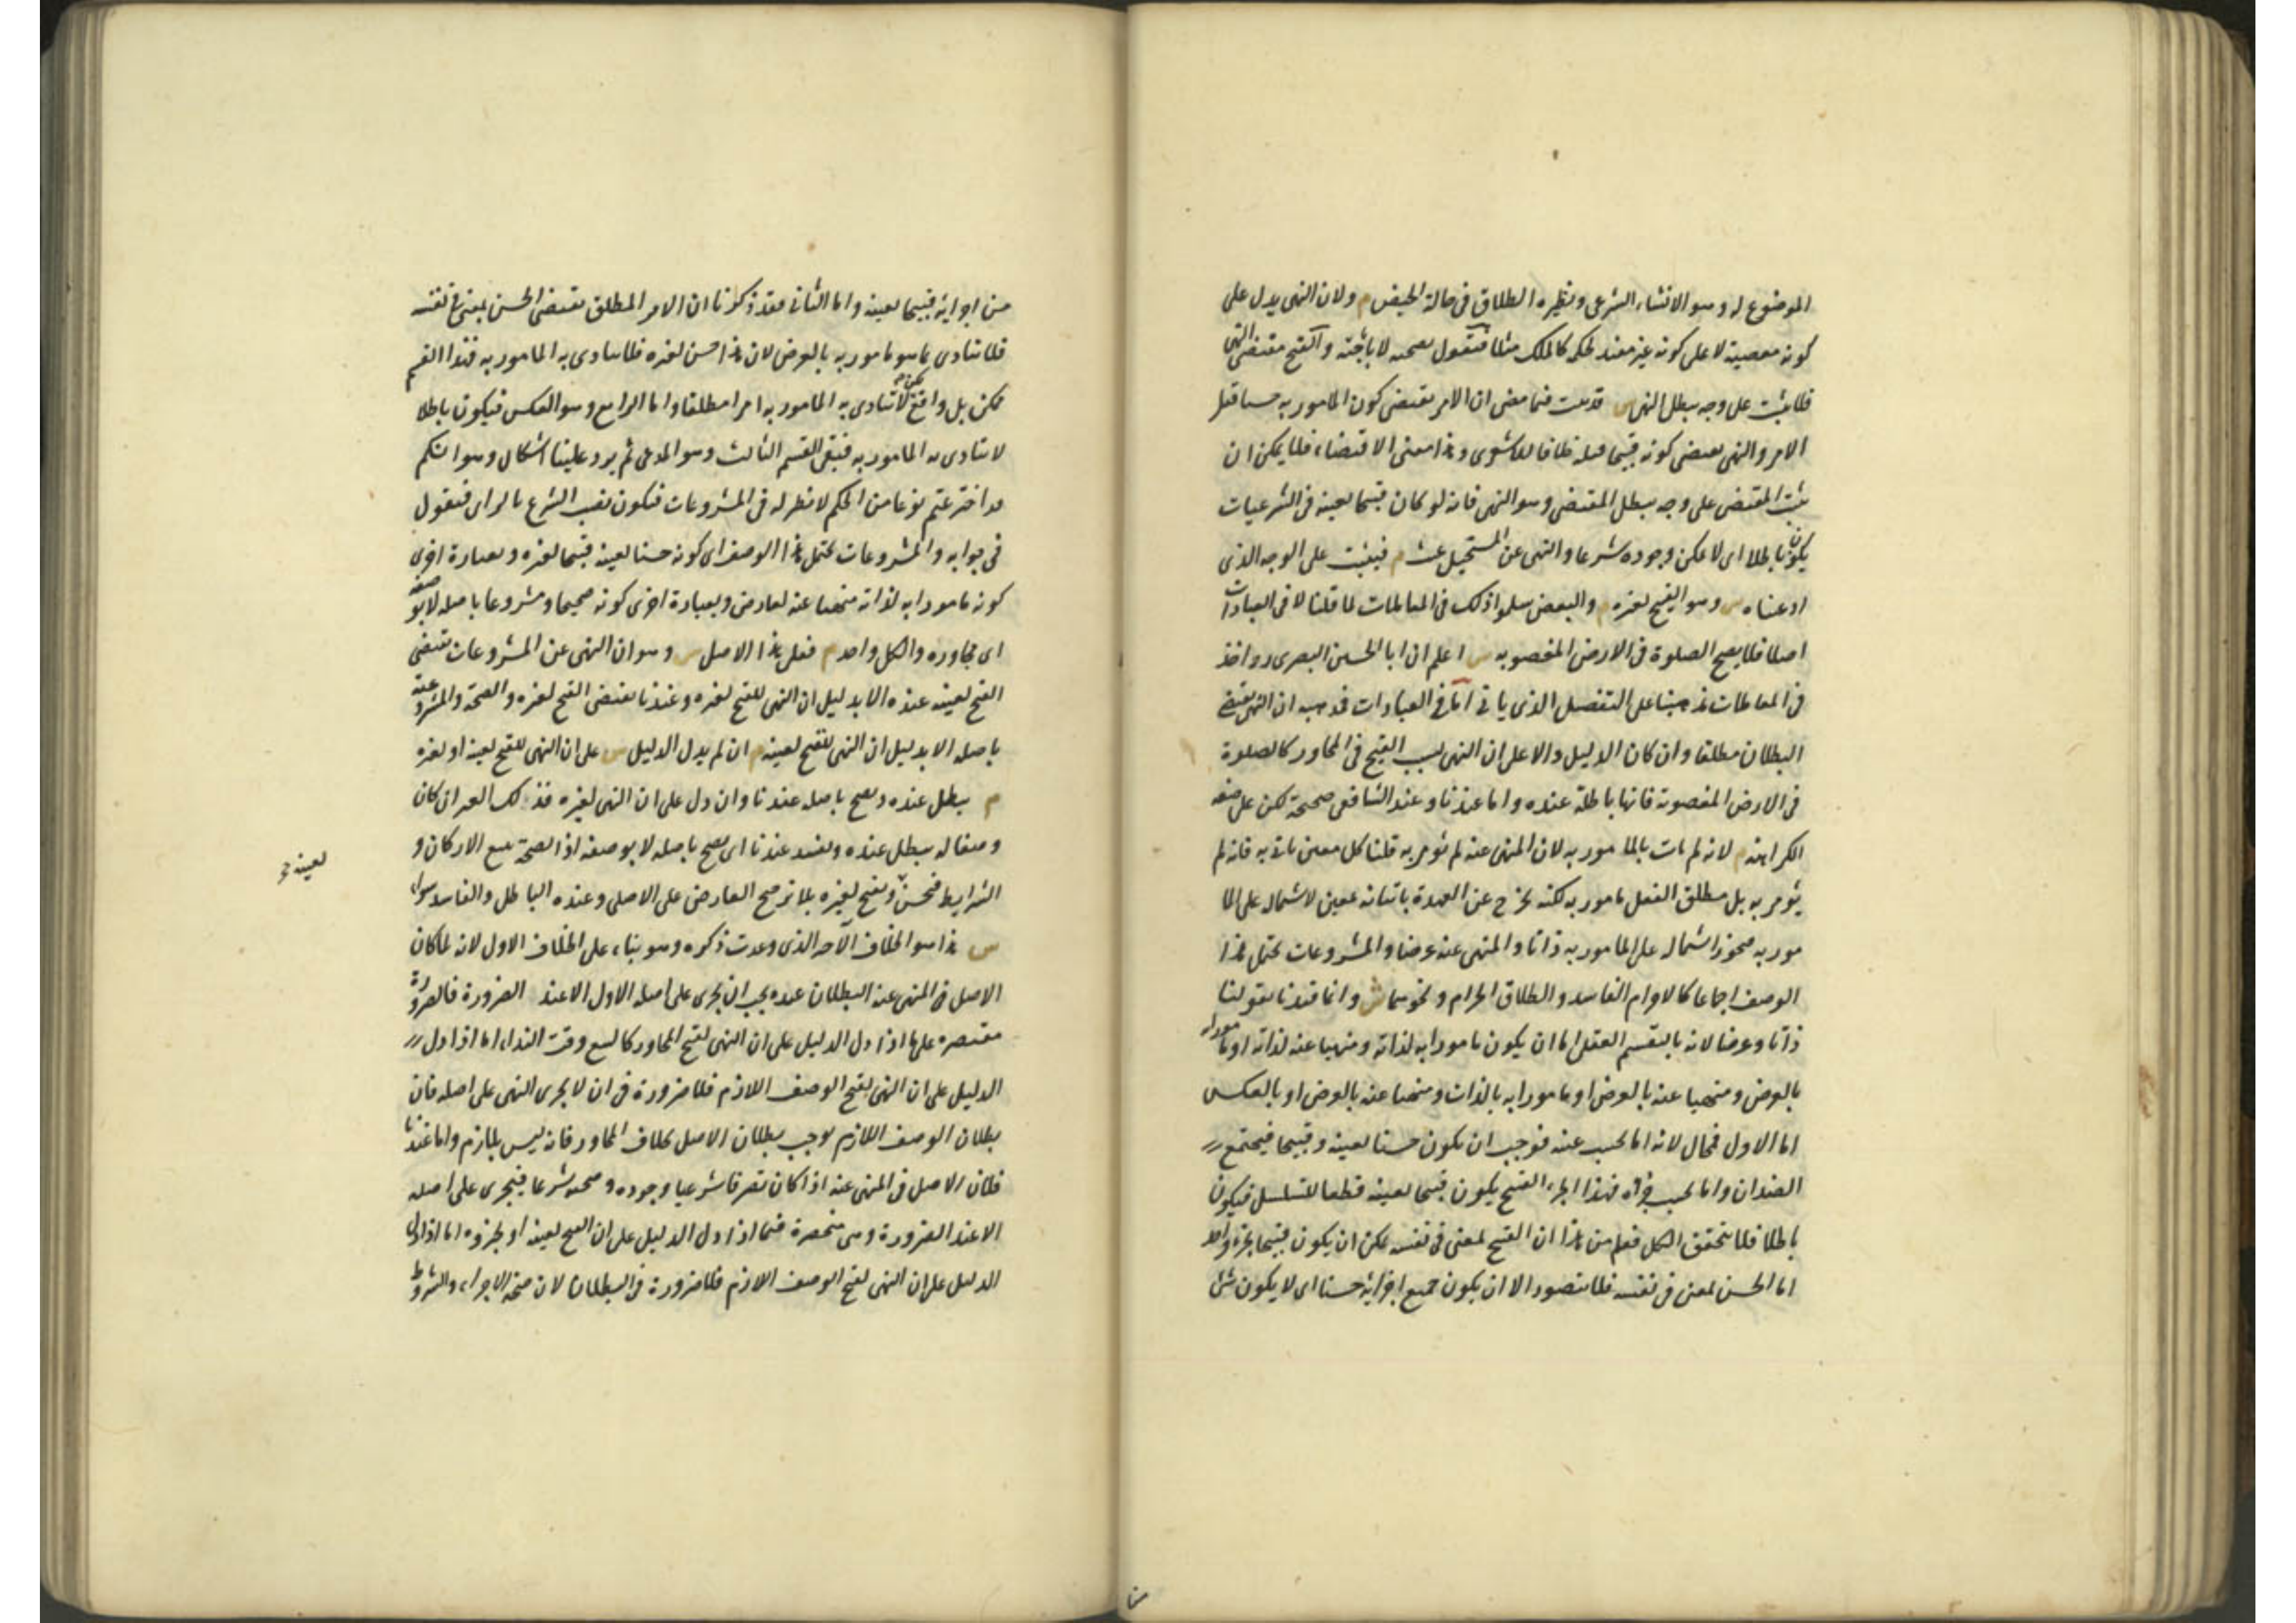 الموضوع له وهو الانشاء الشرعى ونظيره الطلاق فى حالة الحيض م ولان النهى يدل على
كونه معصية لا على كونه غير مفيد لحكمه كالملك مثلا فنقول بصحته لا باباحته والقبح مقتضى النهى
فلا يثبت على وجه يبطل النهى س قد ثبت فيما مضى ان الامر يقتضى كون المامور به حسنا قبل
الامر والنهى يقتضى كونه قبيحا قبله خلافا للاشعرى وهذا معنى الاقتضاء فلا يمكن ان
يثبت المقتضى على وجه يبطل المقتضى وهو النهى فانه لو كان قبيحا لعينه فى الشرعيات
يكون باطلا اى لا يمكن وجوده شرعا والنهى عن المستحيل عبث م فيثبت على الوجه الذى
ادعيناه س وهو القبح لغيره م والبعض سلموا ذلك فى المعاملات لما قلنا لا فى العبادات
اصلا فلا يصح الصلوة فى الارض المغصوبه س اعلم ان ابا الحسين البصرى رح اخذ
فى المعاملات مذهبنا على التفصيل الذى ياتى اما فى العبادات فمذهبه ان النهى يقتضى
البطلان مطلقا وان كان الدليل دالا على ان النهى بسبب القبح فى المجاور كالصلوة
فى الارض المغصوبة فانها باطلة عنده واما عندنا وعند الشافعى صحيحة لكن على صفة
الكراهة م لانه لم يات بالمامور به لان المنهى عنه لم يؤمر به قلنا كل معين ياتى به فانه لم
يؤمر به بل مطلق الفعل مامور به لكنه يخرج عن العهدة باتيانه بمعين لاشتماله على الما
مور به فيجوز اشتماله على المامور به ذاتا والمنهى عنه عرضا والمشروعات تحتمل هذا
الوصف اجماعا كالاحرام الفاسد والطلاق الحرام ونحوهما ش وانما قيدنا بقولنا
ذاتا وعرضا لانه بالتقسيم العقلى اما ان يكون مامورا به لذاته ومنهيا عنه لذاته او مامورا به
بالعرض ومنهيا عنه بالعرض او مامورا به بالذات ومنهيا عنه بالعرض او بالعكس
اما الاول فمحال لانه اما بحسب عينه فوجب ان يكون حسنا لعينه وقبيحا فيجتمع
الضدان واما بحسب جزئه فهذا الجزء القبيح يكون قبيحا لعينه قطعا للتسلسل فيكون
باطلا فلا يتحقق الكل فعلم من هذا ان القبيح لمعنى فى نفسه يمكن ان يكون قبيحا بجزء واحد
اما الحسن لمعنى فى نفسه فلا يتصور الا ان يكون جميع اجزائه حسنا اى لا يكون شئ
من اجزائه قبيحا لعينه واما الثانى فقد ذكرنا ان الامر المطلق يقتضى الحسن لمعنى فى نفسه
فلا يتادى بما هو مامور به بالعرض لان هذا حسن لغيره فلا يتادى به المامور به فهذا القسم
ممكن بل واقع لكن لا يتادى به المامور به امرا مطلقا واما الرابع وهو العكس فيكون باطلا
لا يتادى به المامور به فبقى القسم الثالث وهو المدعى ثم يرد علينا اشكال وهو انكم
قد اخترعتم نوعا من الحكم لا نظير له فى المشروعات فيكون نصب الشرع بالراى فنقول
فى جوابه والمشروعات تحتمل هذا الوصف اى كونه حسنا لعينه قبيحا لغيره وبعبارة اخرى
كونه مامورا به لذاته منهيا عنه لعارض وبعبارة اخرى كونه صحيحا ومشروعا باصله لا بوصفه
اى مجاوره والكل واحد م فعلى هذا الاصل س وهو ان النهى عن المشروعات يقتضى
القبح لعينه عنده الا بدليل ان النهى للقبح لغيره وعندنا يقتضى القبح لغيره والصحة والمشروعية
باصله الا بدليل ان النهى للقبح لعينه م ان لم يدل الدليل س على ان النهى للقبح لعينه او لغيره
م يبطل عنده ويصح باصله عندنا وان دل على ان النهى لغيره فذلك الغير ان كان
وصفا له يبطل عنده ويفسد عندنا اى يصح باصله لا بوصفه اذ الصحة تتبع الاركان و
الشرايط فيحسن ويقبح لغيره بلا ترجيح العارض على الاصلى وعنده الباطل والفاسد سواء
لعينه صح
س هذا هو الخلاف الآخر الذى وعدت ذكره وهو بناء على الخلاف الاول لانه لما كان
الاصل فى المنهى عنه البطلان عنده يجب ان يجرى على اصله الاول الا عند الضرورة فالضرورة
مقتصرة على ما اذا دل الدليل على ان النهى لقبح المجاور كالبيع وقت النداء اما اذا دل
الدليل على ان النهى لقبح الوصف اللازم فلا ضرورة فى ان لا يجرى النهى على اصله فان
بطلان الوصف اللازم يوجب بطلان الاصل بخلاف المجاور فانه ليس بلازم واما عندنا
فلان الاصل فى المنهى عنه اذا كان تصرفا شرعيا وجوده وصحته شرعا فيجرى على اصله
الا عند الضرورة وهى منحصرة فيما اذا دل الدليل على ان القبح لعينه او لجزئه اما اذا دل
الدليل على ان النهى لقبح الوصف اللازم فلا ضرورة فى البطلان لان صحة الاجزاء والشروط
من